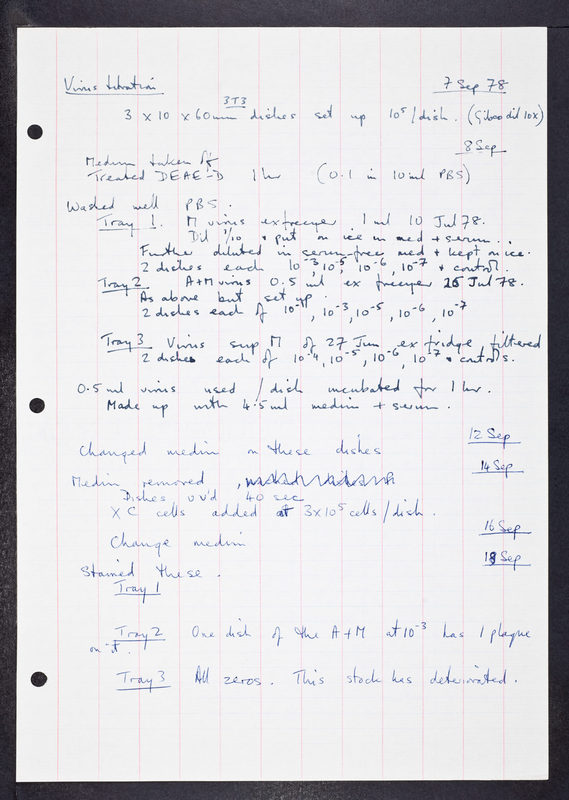 Virus titration 7 Sep 78
3T3
3 x 10 x 60mm dishes set up 10⁵/dish. (Gibco dil 10x)
8 Sep
Medium taken off
Treated DEAE-D 1 hr (0.1 in 10 ml PBS)
Washed well PBS.
Tray 1. M virus ex freezer 1 ml 10 Jul 78.
Dil 1/10 & put on ice in med + serum.
Further diluted in serum-free med & kept on ice.
2 dishes each 10⁻³, 10⁻⁵, 10⁻⁶, 10⁻⁷ & control.
Tray 2 A+M virus 0.5 ml ex freezer 25 Jul 78.
As above but set up
2 dishes each of 10⁻¹, 10⁻³, 10⁻⁵, 10⁻⁶, 10⁻⁷
Tray 3 Virus sup M of 27 Jun ex fridge, filtered
2 dishes each of 10⁻⁴, 10⁻⁵, 10⁻⁶, 10⁻⁷ & controls.
0.5 ml virus used / dish incubated for 1 hr.
Made up with 4.5 ml medium + serum.
12 Sep
Changed medium on these dishes
14 Sep
Medium removed,
Dishes uv'd 40 sec
XC cells added at 3x10⁵ cells/dish.
16 Sep
Change medium
18 Sep
Stained these.
Tray 1
Tray 2 One dish of the A+M at 10⁻³ has 1 plaque
on it.
Tray 3 All zeros. This stock has deteriorated.